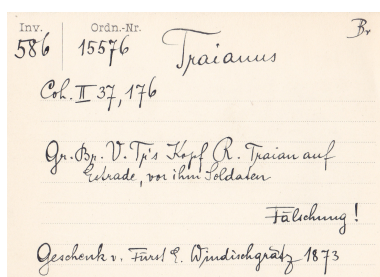 Inv. Ordn.-Nr. Br
586 15576 Traianus
Coh. II 37, 176
Gr. Br. V. Tr's Kopf R. Traian auf
Estrade, vor ihm Soldaten
Fälschung!
Geschenk v. Fürst E. Windischgrätz 1873